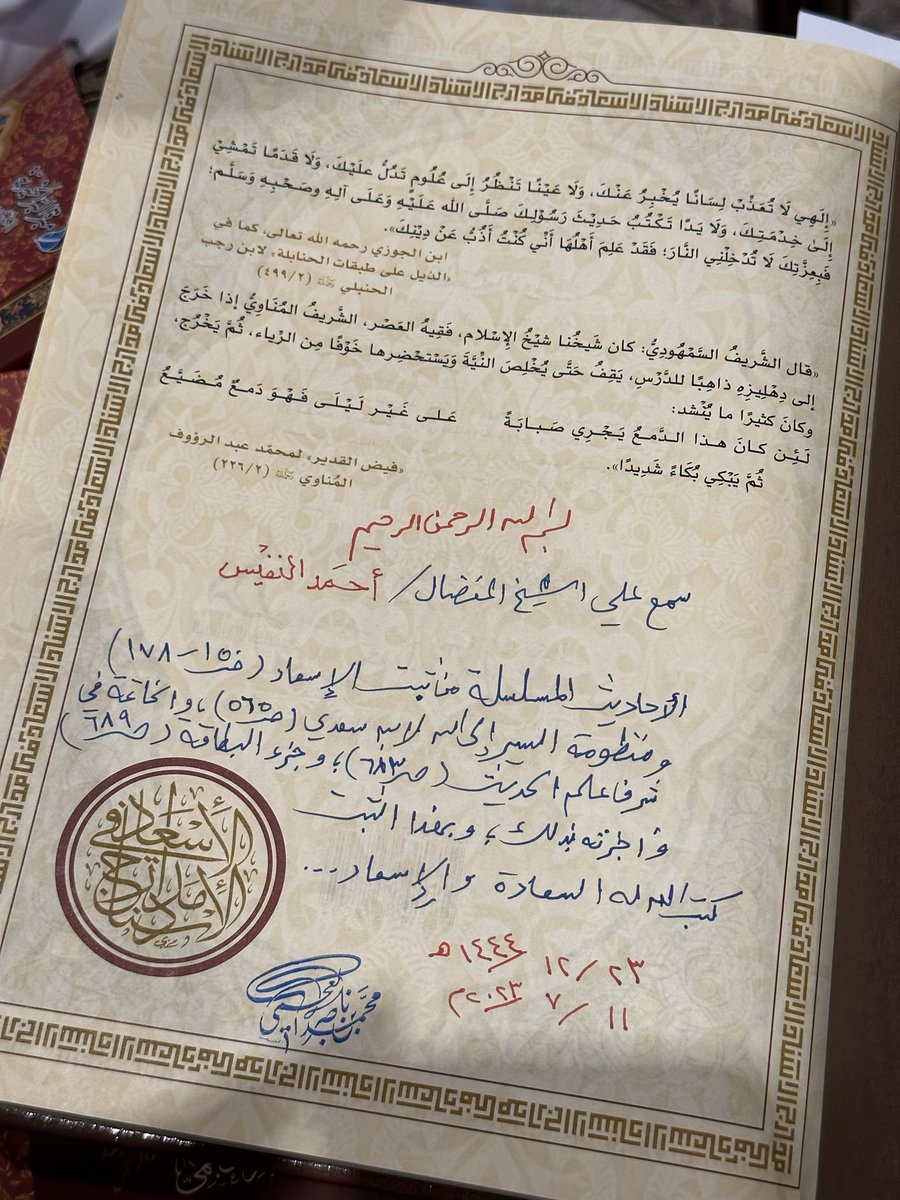 «إِلَهِي لَا تُعَذِّبْ لِسَانًا يُخْبِرُ عَنْكَ، وَلَا عَيْنًا تَنْظُرُ إِلَى عُلُومٍ تَدُلُّ عَلَيْكَ، وَلَا قَدَمًا تَمْشِي
إِلَىٰ خِدْمَتِكَ، وَلَا يَدًا تَكْتُبُ حَدِيثَ رَسُولِكَ صَلَّى الله عَلَيْهِ وَعَلَى آلِهِ وصَحْبِهِ وَسَلَّم؛
فَبِعِزَّتِكَ لَا تُدْخِلْنِي النَّارَ؛ فَقَدْ عَلِمَ أَهْلُهَا أَنِّي كُنْتُ أَذُبُّ عَنْ دِيْنِكَ».
ابن الجوزي رحمه الله تعالى، كما في
«الذيل على طبقات الحنابلة» لابن رجب
الحنبلي ﵀ (٤٩٩/٢)
«قال الشَّرِيفُ السَّمْهُودِيُّ: كان شَيخُنا شيْخُ الإِسْلام، فَقِيهُ العَصْر، الشَّريفُ المُنَاوِيُّ إذا خَرَجَ
إلى دِهْلِيزِهِ ذاهِبًا للدَّرْسِ، يَقِفُ حَتَّى يُخْلِصَ النِّيَّةَ وَيَسْتَحْضِرها خَوْفًا مِن الرِّياء، ثُمَّ يَخْرُج،
وكانَ كثيرًا ما يُنْشد:
لَئِن كانَ هذا الدَّمعُ يَجْرِي صَبابَةً عَلى غَيْر لَيْلَى فَهْوَ دَمعٌ مُضَيَّعُ
ثُمَّ يَبْكِي بُكَاءً شَدِيدًا».
«فيض القدير» لمحمّد عبد الرؤوف
المُناوي ﵀ (٢٢٦/٢)
بسم الله الرحمن الرحيم
سمع علي الشيخ المفضال/ أحمد النفيس
الأحاديث المسلسلة من ثبت الإسعاد (ص١٥-١٧٨)
ومنظومة السير إلى الله لابن سعدي (ص٥٦٥)، والخاتمة في
شرف علم الحديث (ص٦٨٣)؛ وجزء البطاقة (ص٦٨٩)
وأجزته بذلك، وبهذا الثبت
كتب الله له السعادة والإسعاد...
٢٣/ ١٢/ ١٤٤٤هـ
١١/ ٧/ ٢٠٢٣م
الإسعاد في
مدارج
الإسناد
محمد بن ناصر العجمي